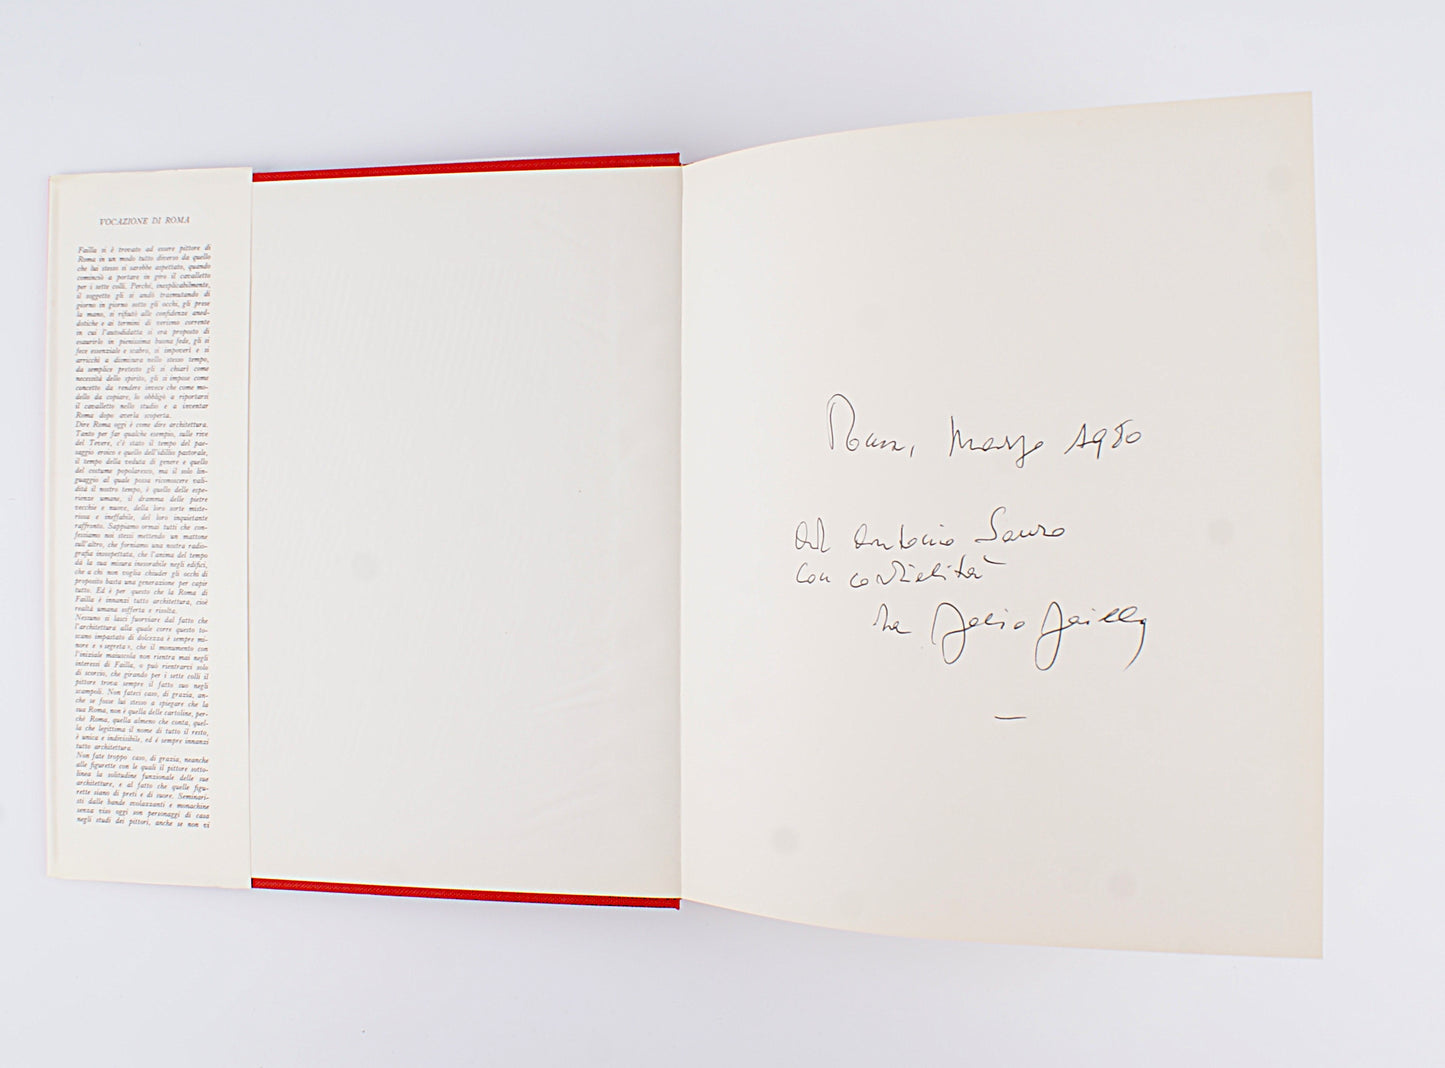 VOCAZIONE DI ROMA
Failla si è trovato ad essere pittore di
Roma in un modo tutto diverso da quello
che lui stesso si sarebbe aspettato, quando
cominciò a portare in giro il cavalletto
per i sette colli. Perché, inesplicabilmente,
il soggetto gli si andò trasmutando di
giorno in giorno sotto gli occhi, gli prese
la mano, si rifiutò alle confidenze aned-
dotiche e ai termini di verismo corrente
in cui l'autodidatta si era proposto di
esaurirlo in pienissima buona fede, gli si
fece essenziale e scabro, si impoverì e si
arricchì a dismisura nello stesso tempo,
da semplice pretesto gli si chiarì come
necessità dello spirito, gli si impose come
concetto da rendere invece che come mo-
dello da copiare, lo obbligò a riportarsi
il cavalletto nello studio e a inventar
Roma dopo averla scoperta.
Dire Roma oggi è come dire architettura.
Tanto per far qualche esempio, sulle rive
del Tevere, c'è stato il tempo del pae-
saggio eroico e quello dell'idillio pastorale,
il tempo della veduta di genere e quello
del costume popolaresco, ma il solo lin-
guaggio al quale possa riconoscere vali-
dità il nostro tempo, è quello delle espe-
rienze umane, il dramma delle pietre
vecchie e nuove, della loro sorte miste-
riosa e ineffabile, del loro inquietante
raffronto. Sappiamo ormai tutti che con-
fessiamo noi stessi mettendo un mattone
sull'altro, che forniamo una nostra radio-
grafia insospettata, che l'anima del tempo
dà la sua misura inesorabile negli edifici,
che a chi non voglia chiuder gli occhi di
proposito basta una generazione per capir
tutto. Ed è per questo che la Roma di
Failla è innanzi tutto architettura, cioè
realtà umana sofferta e risolta.
Nessuno si lasci fuorviare dal fatto che
l'architettura alla quale corre questo to-
scano impastato di dolcezza è sempre mi-
nore e « segreta », che il monumento con
l'iniziale maiuscola non rientra mai negli
interessi di Failla, o può rientrarvi solo
di scorcio, che girando per i sette colli il
pittore trova sempre il fatto suo negli
scampoli. Non fateci caso, di grazia, an-
che se fosse lui stesso a spiegare che la
sua Roma, non è quella delle cartoline, per-
ché Roma, quella almeno che conta, quel-
la che legittima il nome di tutto il resto,
è unica e indivisibile, ed è sempre innanzi
tutto architettura.
Non fate troppo caso, di grazia, neanche
alle figurette con le quali il pittore sotto-
linea la solitudine funzionale delle sue
architetture, e al fatto che quelle figu-
rette siano di preti e di suore. Seminari-
sti dalle bande svolazzanti e monachine
senza viso oggi son personaggi di casa
negli studi dei pittori, anche se non vi
Roma, Marzo 1980
ad Antonio Sauro
con cordialità
da Delio Failla